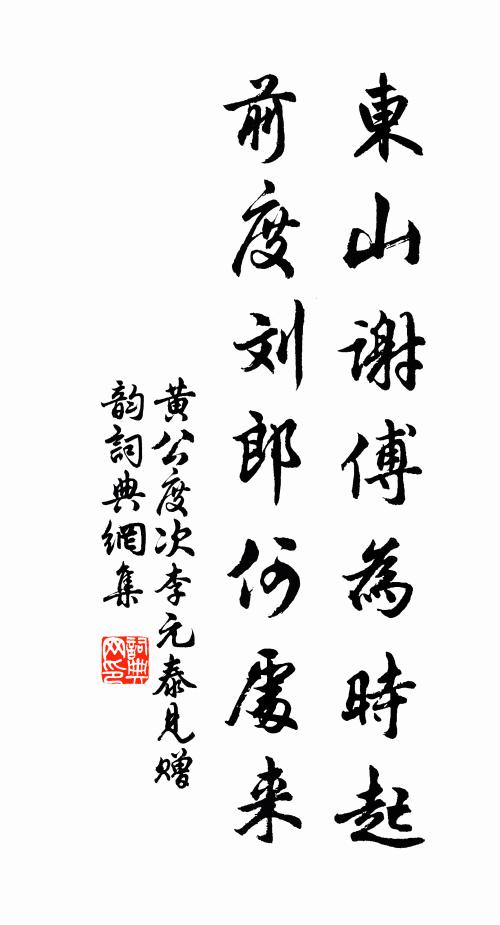 東山謝傅為時起
前度刘郎何處来
黄公度次李元泰見贈
韵詞典網集
詞典网印